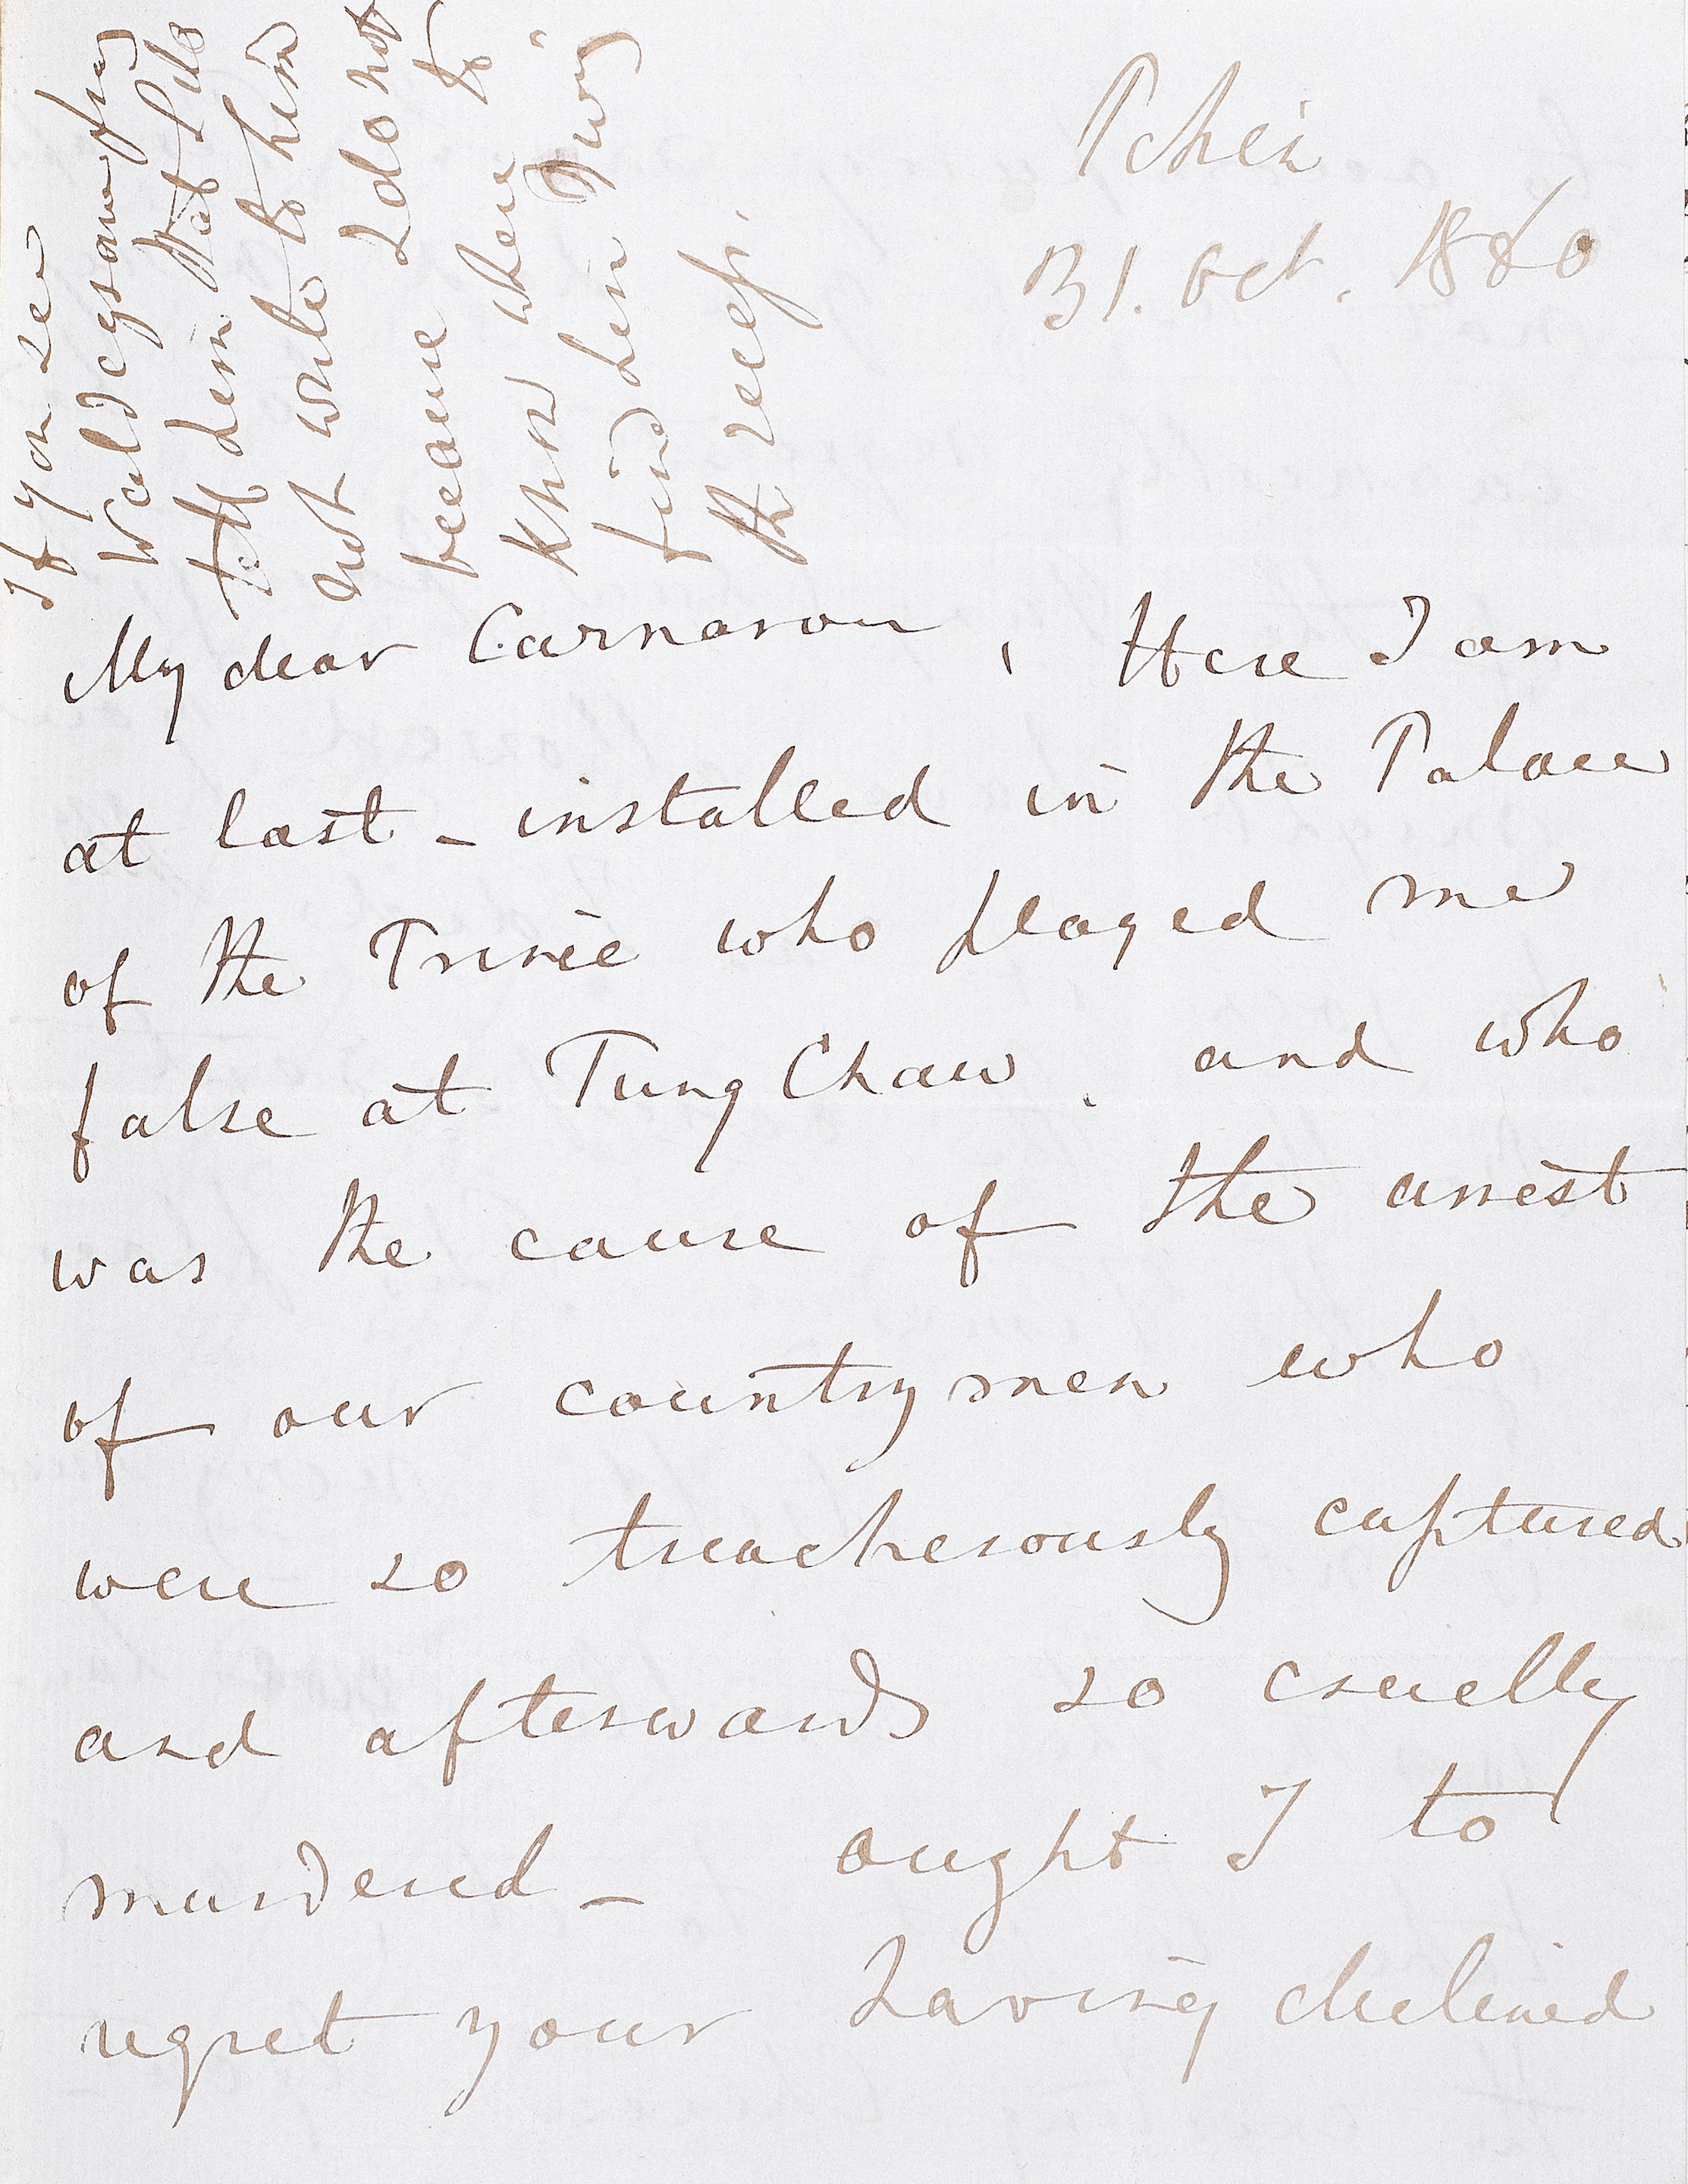 Pekin
31. Oct. 1860
My dear Carnarvon, Here I am
at last - installed in the Palace
of the Prince who played me
false at Tung Chaw. and who
was the cause of the arrest
of our countrymen who
were so treacherously captured
and afterwards so cruelly
murdered - ought I to
regret your having declined
If you see
Waldegrave pray
tell him that I do
not write to him
because I do not
know where to
find him. Yours